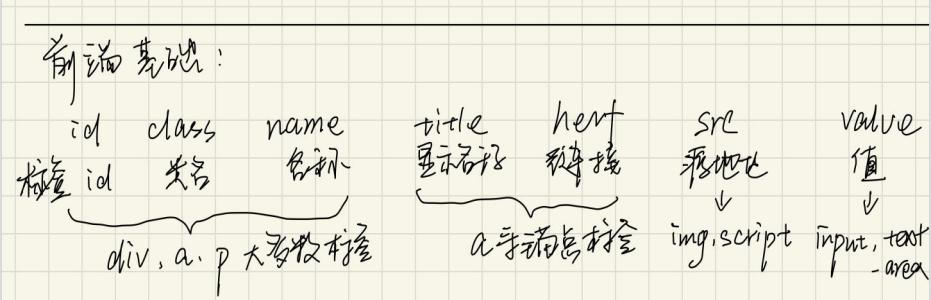 前端基础：
id class name title herf src value
标签id 类名 名称 显示名称 超链接 源地址 值
div、a、p 大多数标签 a 锚点标签 img、script input、text
-area